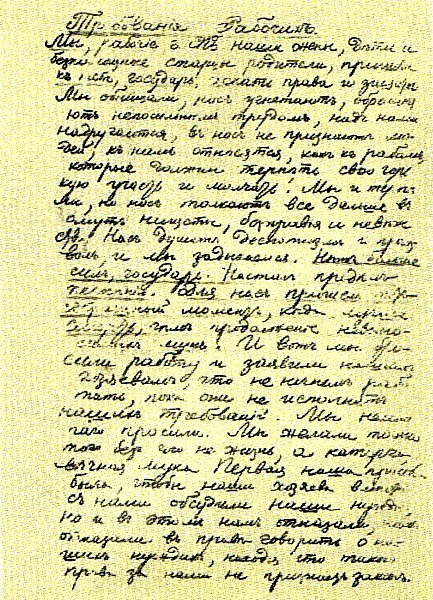 Требованія Рабочихъ.
Мы, рабочіе г. СПБ наши жены, дѣти и
безпомощные старцы родители, пришли
къ тебѣ, государь, искати права и защиты
Мы обнищали, насъ угнетаютъ, обременя
ютъ непосильнымъ трудомъ, надъ нами
надругаются, въ насъ не признаютъ лю-
дей, къ намъ относятся, какъ къ рабамъ,
которые должны терпѣть свою горь
кую участь и молчать. Мы и терпѣ
ли, но насъ толкаютъ все дальше въ
омутъ нищеты, безправья и невѣже
ства. Насъ душатъ деспотизмъ и произ
волъ, и мы задыхаемся. Нѣтъ больше
силъ, государь. Насталъ предѣлъ
терпѣнію. Для насъ пришелъ
моментъ, когда лучше
смерть, чѣмъ продолженіе невыно
симыхъ мукъ. И вотъ мы бро
сили работу и заявили нашимъ
хозяевамъ что не начнемъ рабо
тать, пока они не исполнятъ
нашихъ требованій. Мы немно
гаго просили. Мы желали только
того безъ чего не жизнь, а каторга
вѣчная мука Первая наша просьба
была, чтобы наши хозяева вмѣстѣ
съ нами обсудили наши нужды,
но и въ этомъ намъ отказали,
отказали въ правѣ говорить о на
шихъ нуждахъ, находя, что такого
права за нами не признаетъ законъ.